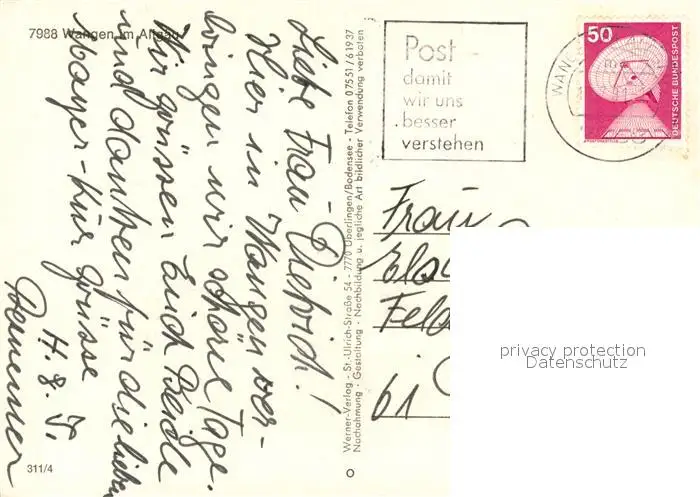 7988 Wangen im Allgäu
Liebe Frau Dietrich!
Hier in Wangen ver-
bringen wir schöne Tage.
Wir grüssen Euch Beide
und danken für die lieben
Mayer-Kur grüsse
H. & F.
311/4
Werner-Verlag - St.-Ulrich-Straße 54 - 7770 Überlingen/Bodensee - Telefon 07551/61937
Nachahmung - Gestaltung - Nachbildung u. jegliche Art bildlicher Verwendung verboten
Post -
damit
wir uns
besser
verstehen
WANG
50
DEUTSCHE BUNDESPOST
Frau
Feld
61
privacy protection
Datenschutz